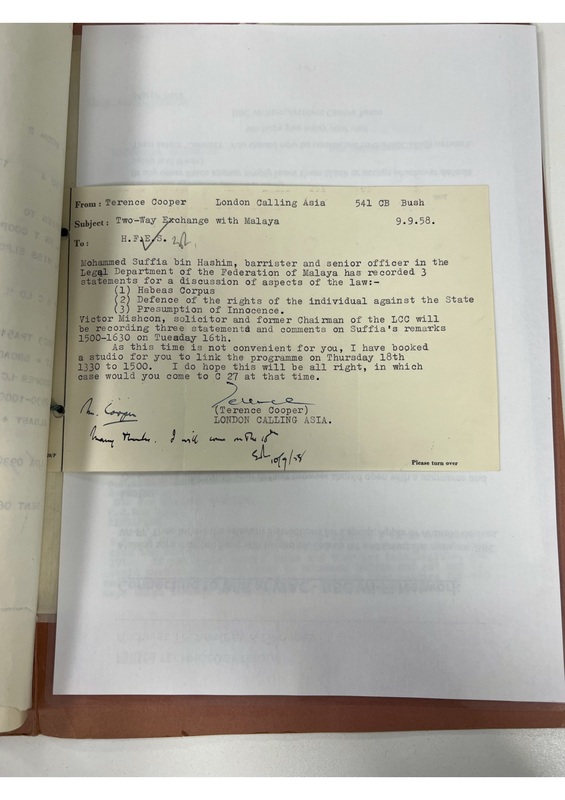 From : Terence Cooper London Calling Asia 541 CB Bush
Subject : Two-Way Exchange with Malaya 9.9.58.
To : H.F.E.S.
Mohammed Suffia bin Hashim, barrister and senior officer in the
Legal Department of the Federation of Malaya has recorded 3
statements for a discussion of aspects of the law:-
(1) Habeas Corpus
(2) Defence of the rights of the individual against the State
(3) Presumption of Innocence.
Victor Mishcon, solicitor and former Chairman of the LCC will
be recording three statements and comments on Suffia's remarks
1500-1630 on Tuesday 16th.
As this time is not convenient for you, I have booked
a studio for you to link the programme on Thursday 18th
1330 to 1500. I do hope this will be all right, in which
case would you come to C 27 at that time.
Terence
(Terence Cooper)
LONDON CALLING ASIA.
Mr. Cooper
Many thanks. I will come on the 18th
10/9/58
Please turn over